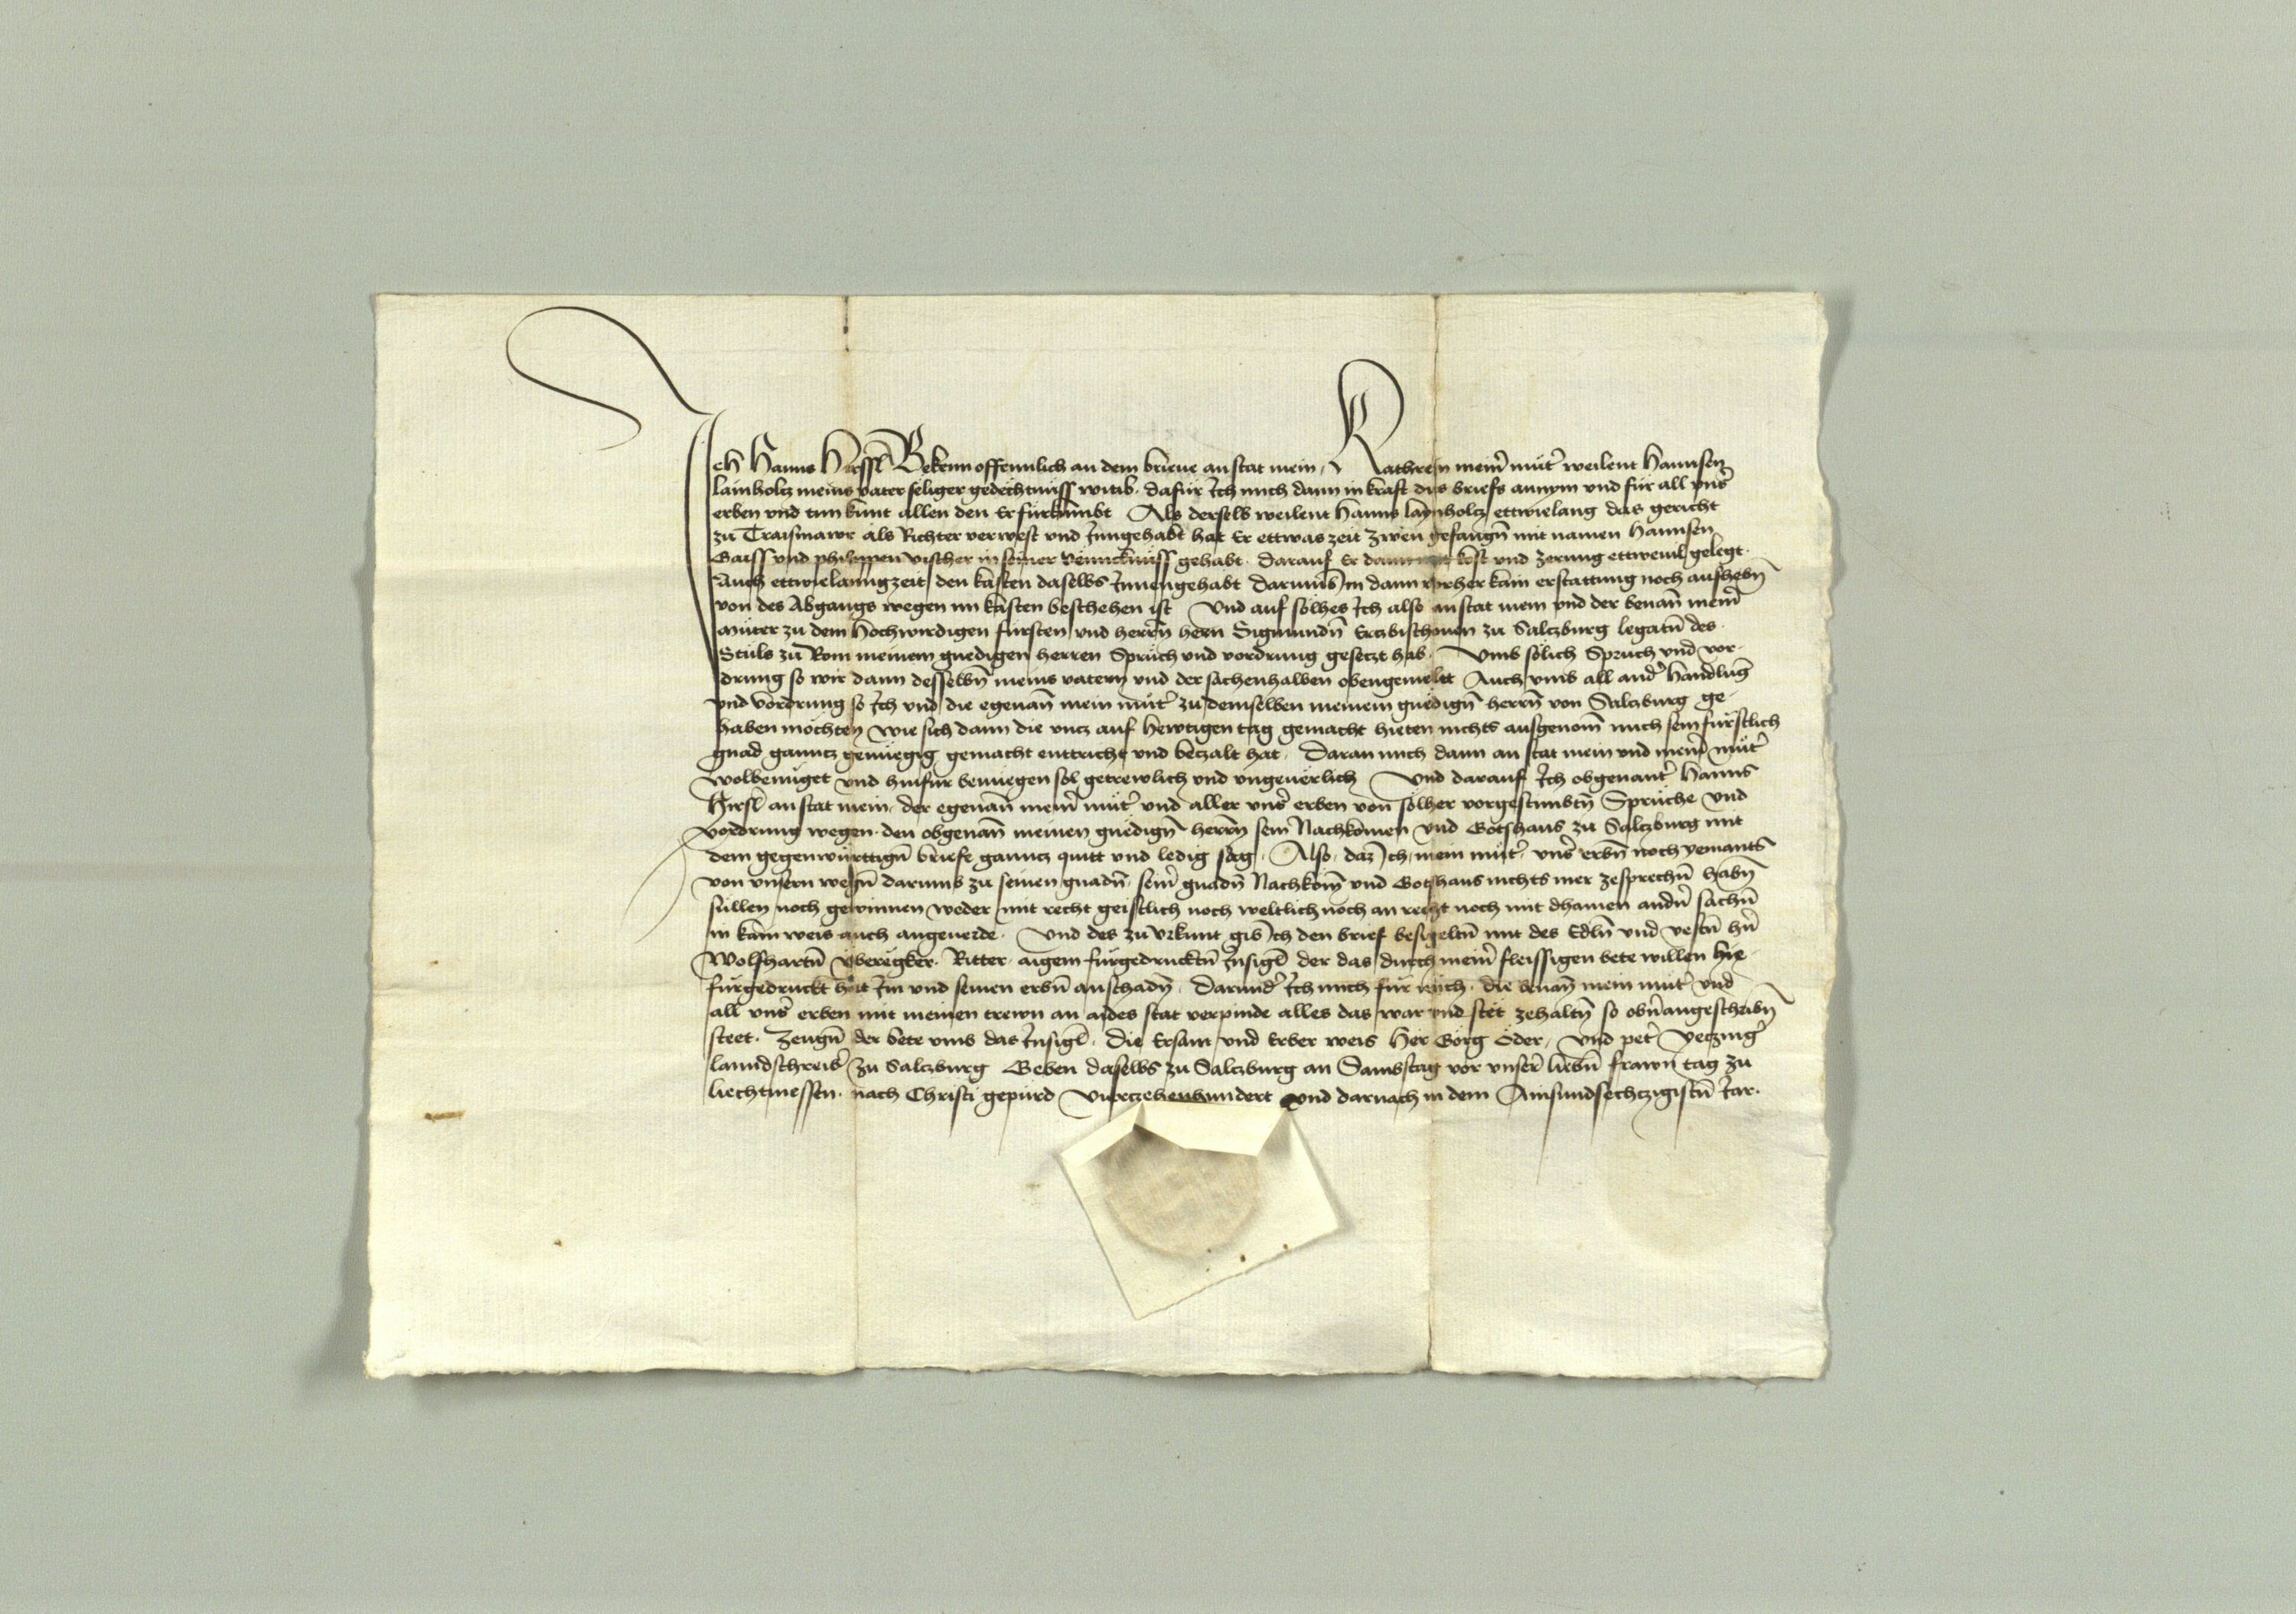 Ich Hanns Hirssl Bekenn offennlich an dem brieue anstat mein, Kathrein meiner muter weilent Hannsen
lainholtz meins vater seliger gedechtnüss witib. dafür Ich mich dann in kraft dits briefs annym und für all vnser
erben und tun kunt allen den Er fürkumbt Als derselb weilent Hanns laynholtz ettwielang das gericht
zu Traismawr als Richter verwest und Inngehabt hat Er ettwas zeit zwen gefangn mit namen Hannsen
Gaiss und philippen vischer in seiner venncknüss gehabt. darauf Er kost und zerung ettweuil gelegt.
Auch ettwielanng zeit den kasten daselbs Innengehabt darumb Im dann vorher kain erstattung noch aufhebn
von des Abgangs wegen im kasten beschehen ist Und auf solhes Ich also anstat mein und der benan meiner
muter zu dem Hochwirdigen fürsten und herrn hern Sigmundn Ertzbischouen zu Saltzburg legatn des
Stuls zu Rom meinem gnedigen herren Spruch und vordrung gesetzt hab. Umb solich Spruch und vor-
drung so wir dann desselbn meins vatern und der sachenhalben obengemelt Auch umb all ander handlung
und vordrung so Ich und die egenan mein muter zu demselben meinem gnedign herrn von Saltzburg ge-
haben mochten wie sich dann die untz auf hewtigen tag gemacht hieten nichts ausgenomen mich sein fürstlich
gnad ganntz genüegig gemacht enttricht und betzalt hat. Daran mich dann an stat mein und meiner muter
wolbenüget und hinfür benüegen sol getrewlich und ungeuerlich Und darauf Ich obgenanter Hanns
Hirsl anstat mein, der egenan meiner muter und aller unser erben von solher vorgestimbtn Sprüche und
vordrung wegen. den obgenan meinen gnedign herrn sein Nachkomen und Gotshaus zu Saltzburg mit
dem gegenwürttign briefe ganntz quitt und ledig sag. Also, daz Ich, mein muter, unser erbn noch yemants
von unsern wegn darumb zu seinen gnadn, seiner gnadn Nachkom und Gotshaus nichts mer zesprechn habn
sullen noch gewinnen weder mit recht geistlich noch weltlich noch an recht noch mit dhainen andern sachn
in kain weis auch angeuerde. Und des zu Urkunt gib Ich den brief besigeltn mit des Edln und vestn hern
Wolfhartn Überegker. Ritter. aigem fürgedrucktn Insigl der das durch meiner fleissigen bete willen hie
fürgedruckt hat Im und seinen erbn anschadn, darunder Ich mich für mich, die benan mein muter und
all unser erben mit meinen trewn an aides stat verpinde alles das war und stet zehaltn so obn angeschribn
steet. Zeugn der bete umb das Insigl. die Ersam und Erber weis Her Görg Öder, und peter Vetzinger
lanndschreiber zu Saltzburg Geben daselbs zu Saltzburg an Sambstag vor unser liebn frawn tag zu
liechtmessen. nach Christi gepurd Viertzehenhundert und darnach in dem Ainsundsechtzigistn Jar.